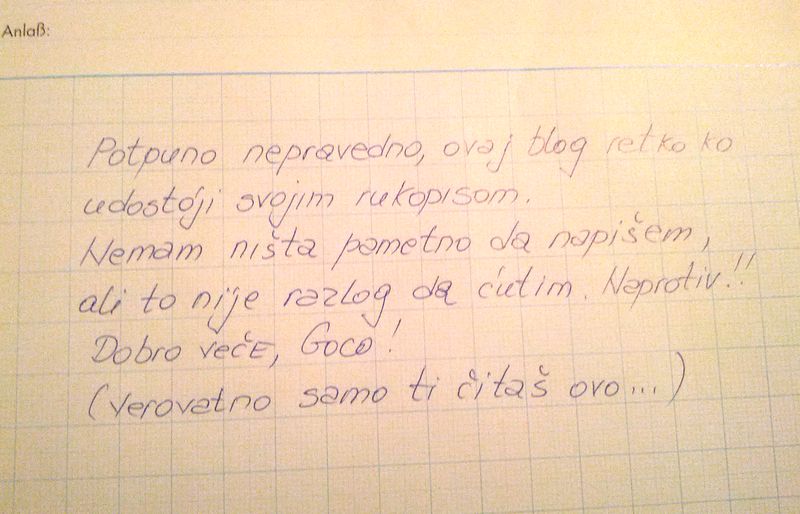 Anlaß:
Potpuno nepravedno, ovaj blog retko ko
udostoji svojim rukopisom.
Nemam ništa pametno da napišem,
ali to nije razlog da ćutim. Naprotiv!!
Dobro veče, Goco!
(Verovatno samo ti čitaš ovo...)